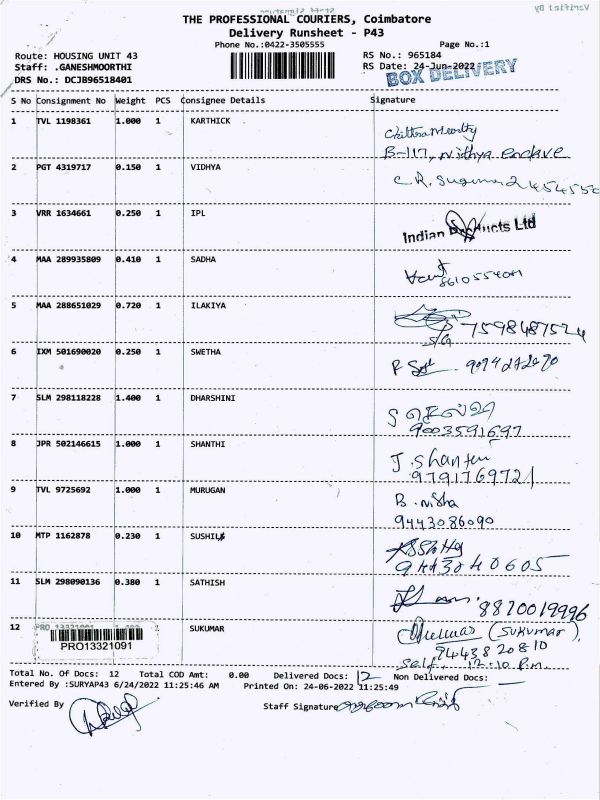 THE PROFESSIONAL COURIERS, Coimbatore
Delivery Runsheet - P43
Phone No.:0422-3505555
Page No.:1
Route: HOUSING UNIT 43
RS No.: 965184
Staff: .GANESHMOORTHI
RS Date: 24-Jun-2022
DRS No.: DCJB96518401
BOX DELIVERY
S No Consignment No Weight PCS Consignee Details Signature
1 TVL 1198361 1.000 1 KARTHICK
B-117, Nithya enclave
2 PGT 4319717 0.150 1 VIDHYA
C.R.
3 VRR 1634661 0.250 1 IPL
Indian Products Ltd
4 MAA 289935809 0.410 1 SADHA
5 MAA 288651029 0.720 1 ILAKIYA
7598487524
6 IXM 501690020 0.250 1 SWETHA
7 SLM 298118228 1.400 1 DHARSHINI
9003591697
8 JPR 502146615 1.000 1 SHANTHI
J. Shanthi
9791769721
9 TVL 9725692 1.000 1 MURUGAN
B. Nisha
9443086090
10 MTP 1162878 0.230 1 SUSHILA
9443040605
11 SLM 298090136 0.380 1 SATHISH
8870019996
12 SUKUMAR
PRO13321091
(Sukumar)
9443820810
Self 12.10 P.m.
Total No. Of Docs: 12 Total COD Amt: 0.00 Delivered Docs: 12 Non Delivered Docs: —
Entered By :SURYAP43 6/24/2022 11:25:46 AM Printed On: 24-06-2022 11:25:49
Verified By
Staff Signature